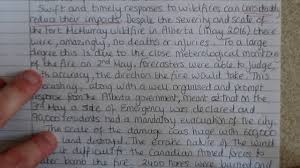 Swift and timely responses to wildfires can considerably
reduce their impacts. Despite the severity and scale of
the Fort McMurray wildfire in Alberta (May 2016) there
were, amazingly, no deaths or injuries. To a large
degree this is due to the close meteorological monitoring
of the fire on 2nd May, forecasters were able to judge,
with accuracy, the direction the fire would take. This
forecasting, along with a well organised and prompt
response from the Alberta government, meant that on the
3rd May a State of Emergency was declared and
90,000 residents had a mandatory evacuation of the city.
The scale of the damage was huge with 600,000
and destroyed. The erratic nature of the
difficult. The Canadian Armed Forces
bomb the fire. 2400 homes were burned and